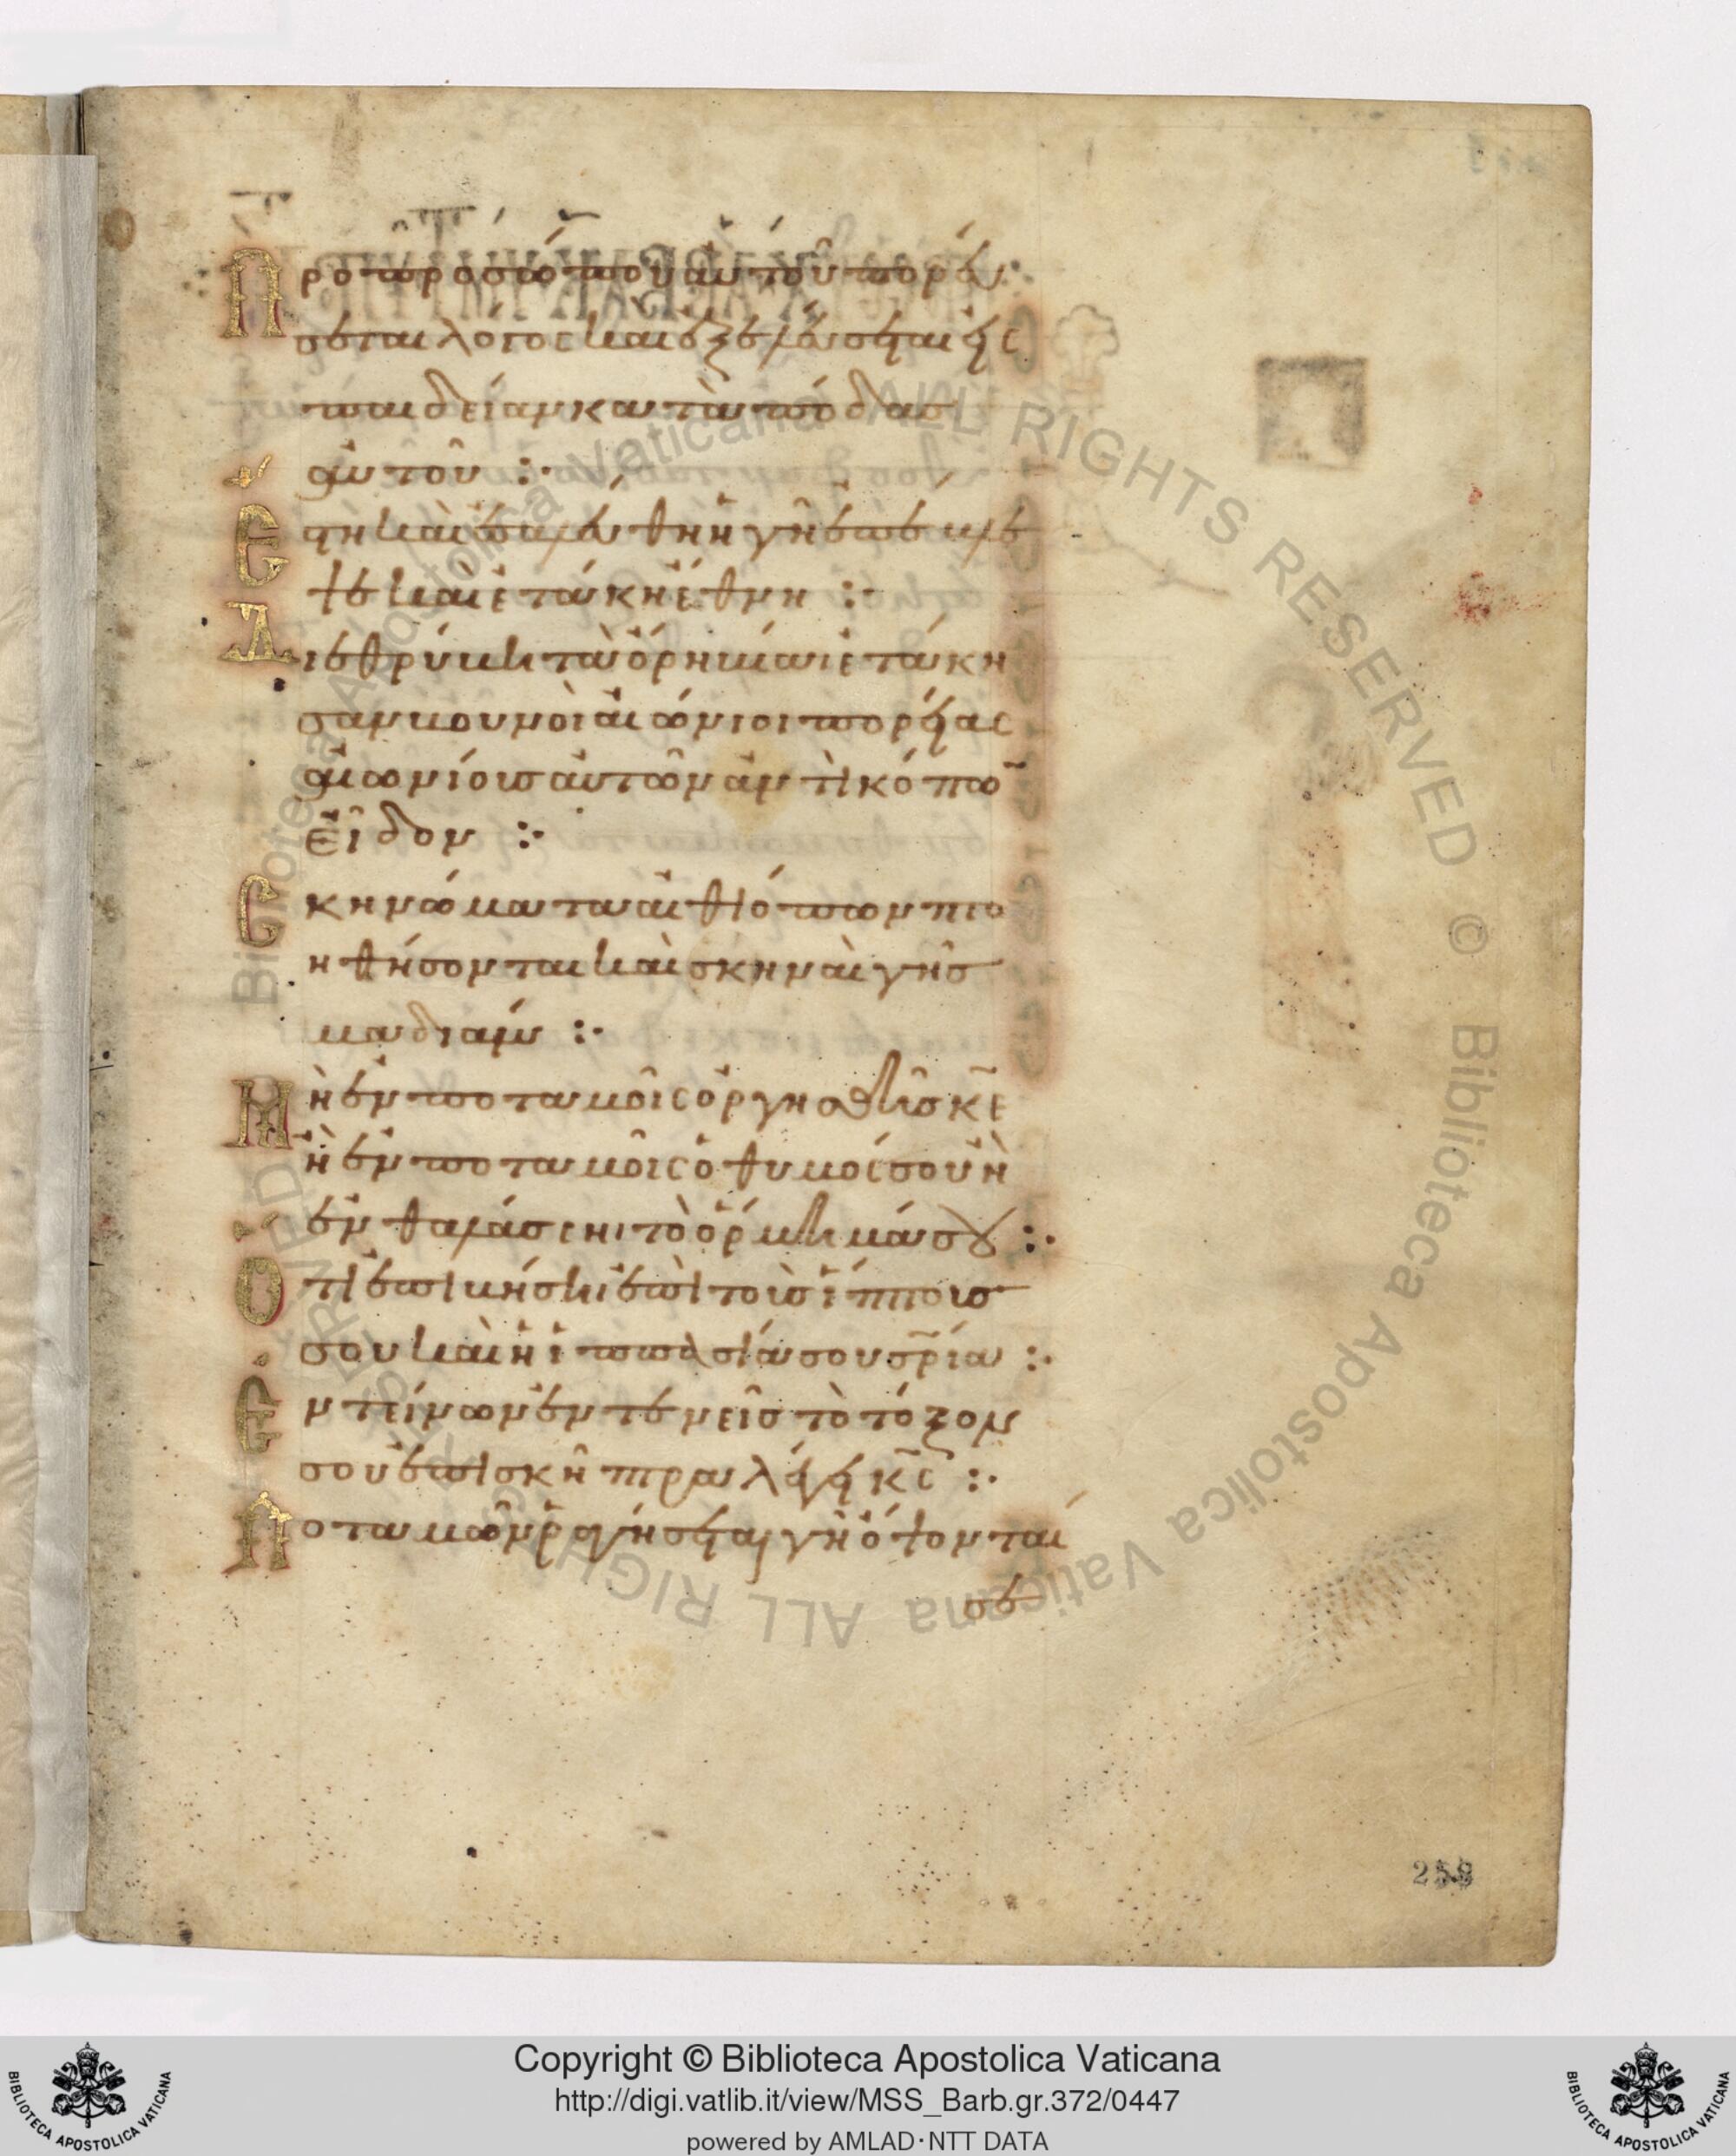 Προ προσώπου αὐτοῦ πορεύ
σεται λόγος καὶ ἐξελεύσεται εἰς
παιδείαν κατὰ πόδας
αὐτοῦ :·
Ἔστη καὶ ἐσαλεύθη ἡ γῆ ἐπέβλε
ψε καὶ ἐτάκη ἔθνη :·
Διεθρύβη τὰ ὄρη βίαι ἐτάκη
σαν βουνοὶ αἰώνιοι πορείας
αἰωνίοισ αὐτῶν ἀντὶ κόπω̅
εἶδον :·
Σκηνώματα αἰθιόπων πτο
ηθήσονται καὶ σκηναὶ γῆσ
μαδιάμ :·
Μὴ ἐν ποταμοῖς ὀργησθῆισ κ̅ε̅
ἢ ἐν ποταμοῖς ὁ θυμός σου ἢ
ἐν θαλάσσηι τὸ ὅρμημά σου :·
Ὅτι ἐπιβήσηι ἐπὶ τοὺσ ἵππουσ
σου καὶ ἡ ἱππασία σου σ̅ρ̅ία :·
Ἐντείνων ἐντενεῖσ τὸ τόξον
σου ἐπὶ σκῆπτρα λέγει κ̅ς̅ :·
Ποταμῶν ῥαγήσεται γῆ ὄψονταί
σε
Copyright © Biblioteca Apostolica Vaticana
http://digi.vatlib.it/view/MSS_Barb.gr.372/0447
powered by AMLAD·NTT DATA